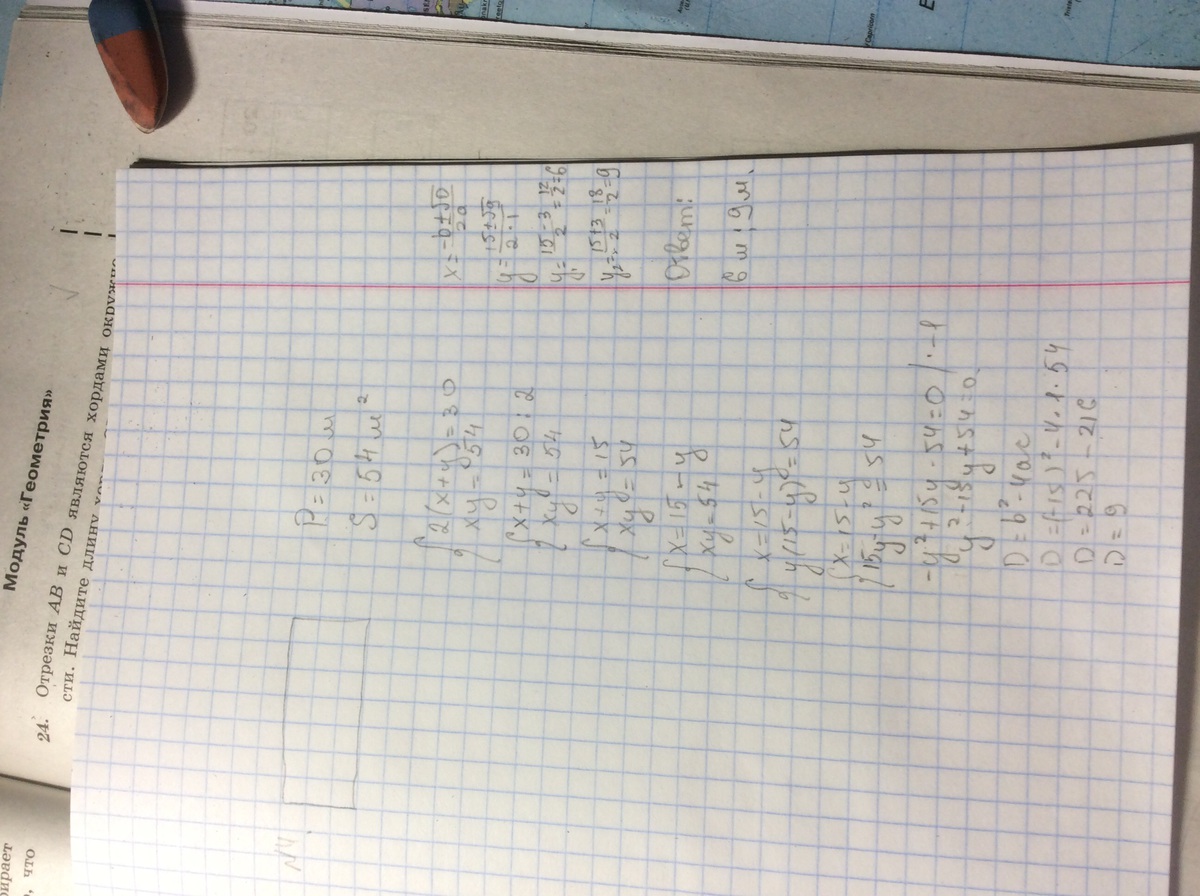 Модуль «Геометрия»
24. Отрезки AB и CD являются хордами окружно
сти. Найдите длину
что
N4
P = 30 м
S = 54 м²
{ 2(x+y) = 30
xy = 54
{ x+y = 30 : 2
xy = 54
{ x+y = 15
xy = 54
{ x = 15 - y
xy = 54
{ x = 15 - y
y(15-y) = 54
{ x = 15 - y
15y - y² = 54
-y² + 15y - 54 = 0 / · -1
y² - 15y + 54 = 0
D = b² - 4ac
D = (-15)² - 4·1·54
D = 225 - 216
D = 9
x = -b ± √D / 2a
y = 15 ± √9 / 2 · 1
y₁ = 15 - 3 / 2 = 12 / 2 = 6
y₂ = 15 + 3 / 2 = 18 / 2 = 9
Ответ:
6 м ; 9 м.